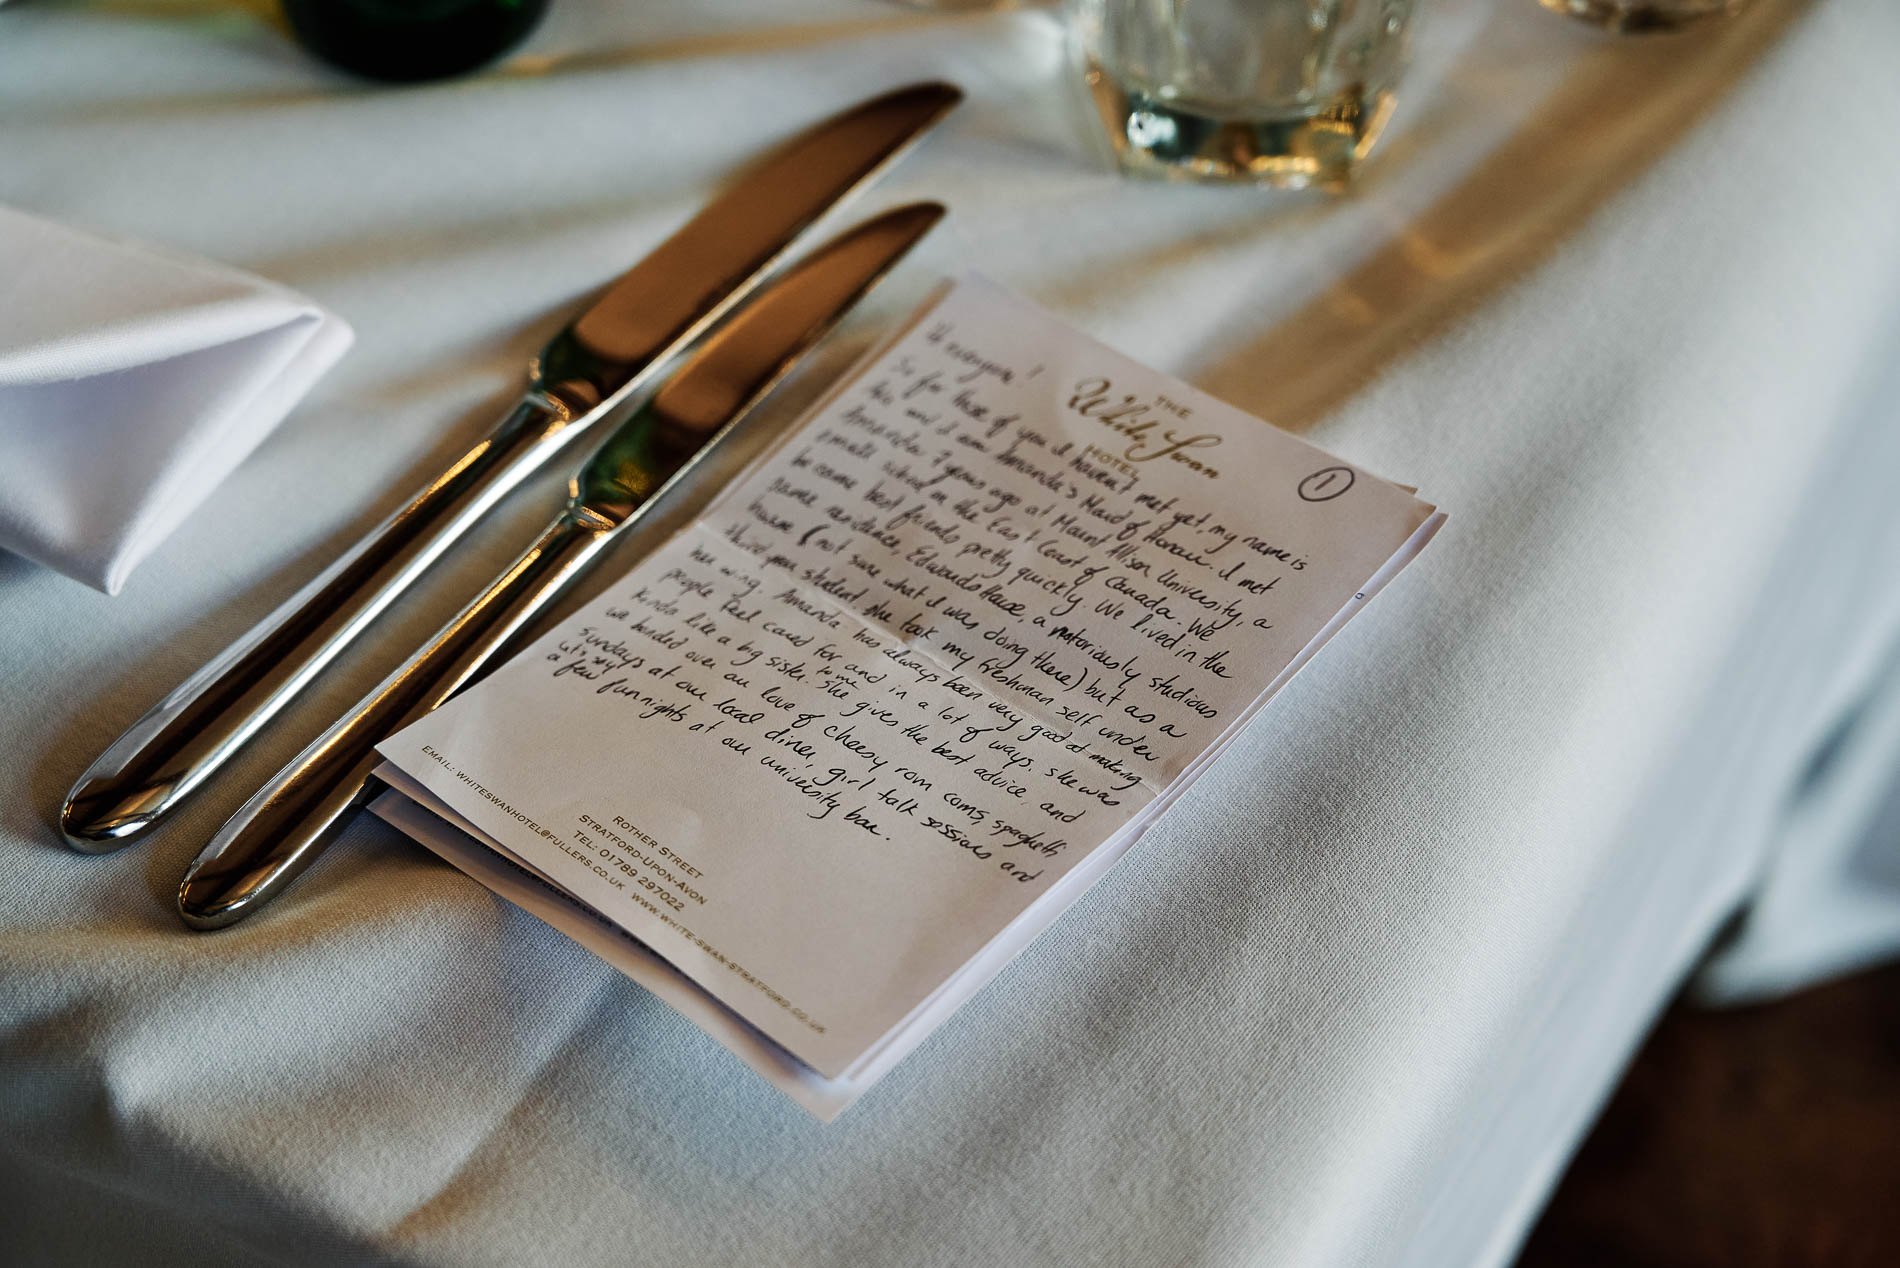 THE
White Swan
HOTEL
1
Hi everyone!
So for those of you I haven't met yet, my name is
and I am Amanda's Maid of Honour. I met
Amanda 7 years ago at Mount Allison University, a
small school on the East Coast of Canada. We
became best friends pretty quickly. We lived in the
same residence, Edwards House, a notoriously studious
house (not sure what I was doing there) but as a
third year student she took my freshman self under
her wing. Amanda has always been very good at making
people feel cared for and in a lot of ways, she was
kinda like a big sister to me. She gives the best advice, and
we bonded over our love of cheesy rom coms, spaghetti
sundays at our local diner, girl talk sessions and
let's say
a few fun nights at our university bar.
ROTHER STREET
STRATFORD-UPON-AVON
TEL: 01789 297022
EMAIL: WHITESWANHOTEL@FULLERS.CO.UK WWW.WHITE-SWAN-STRATFORD.CO.UK